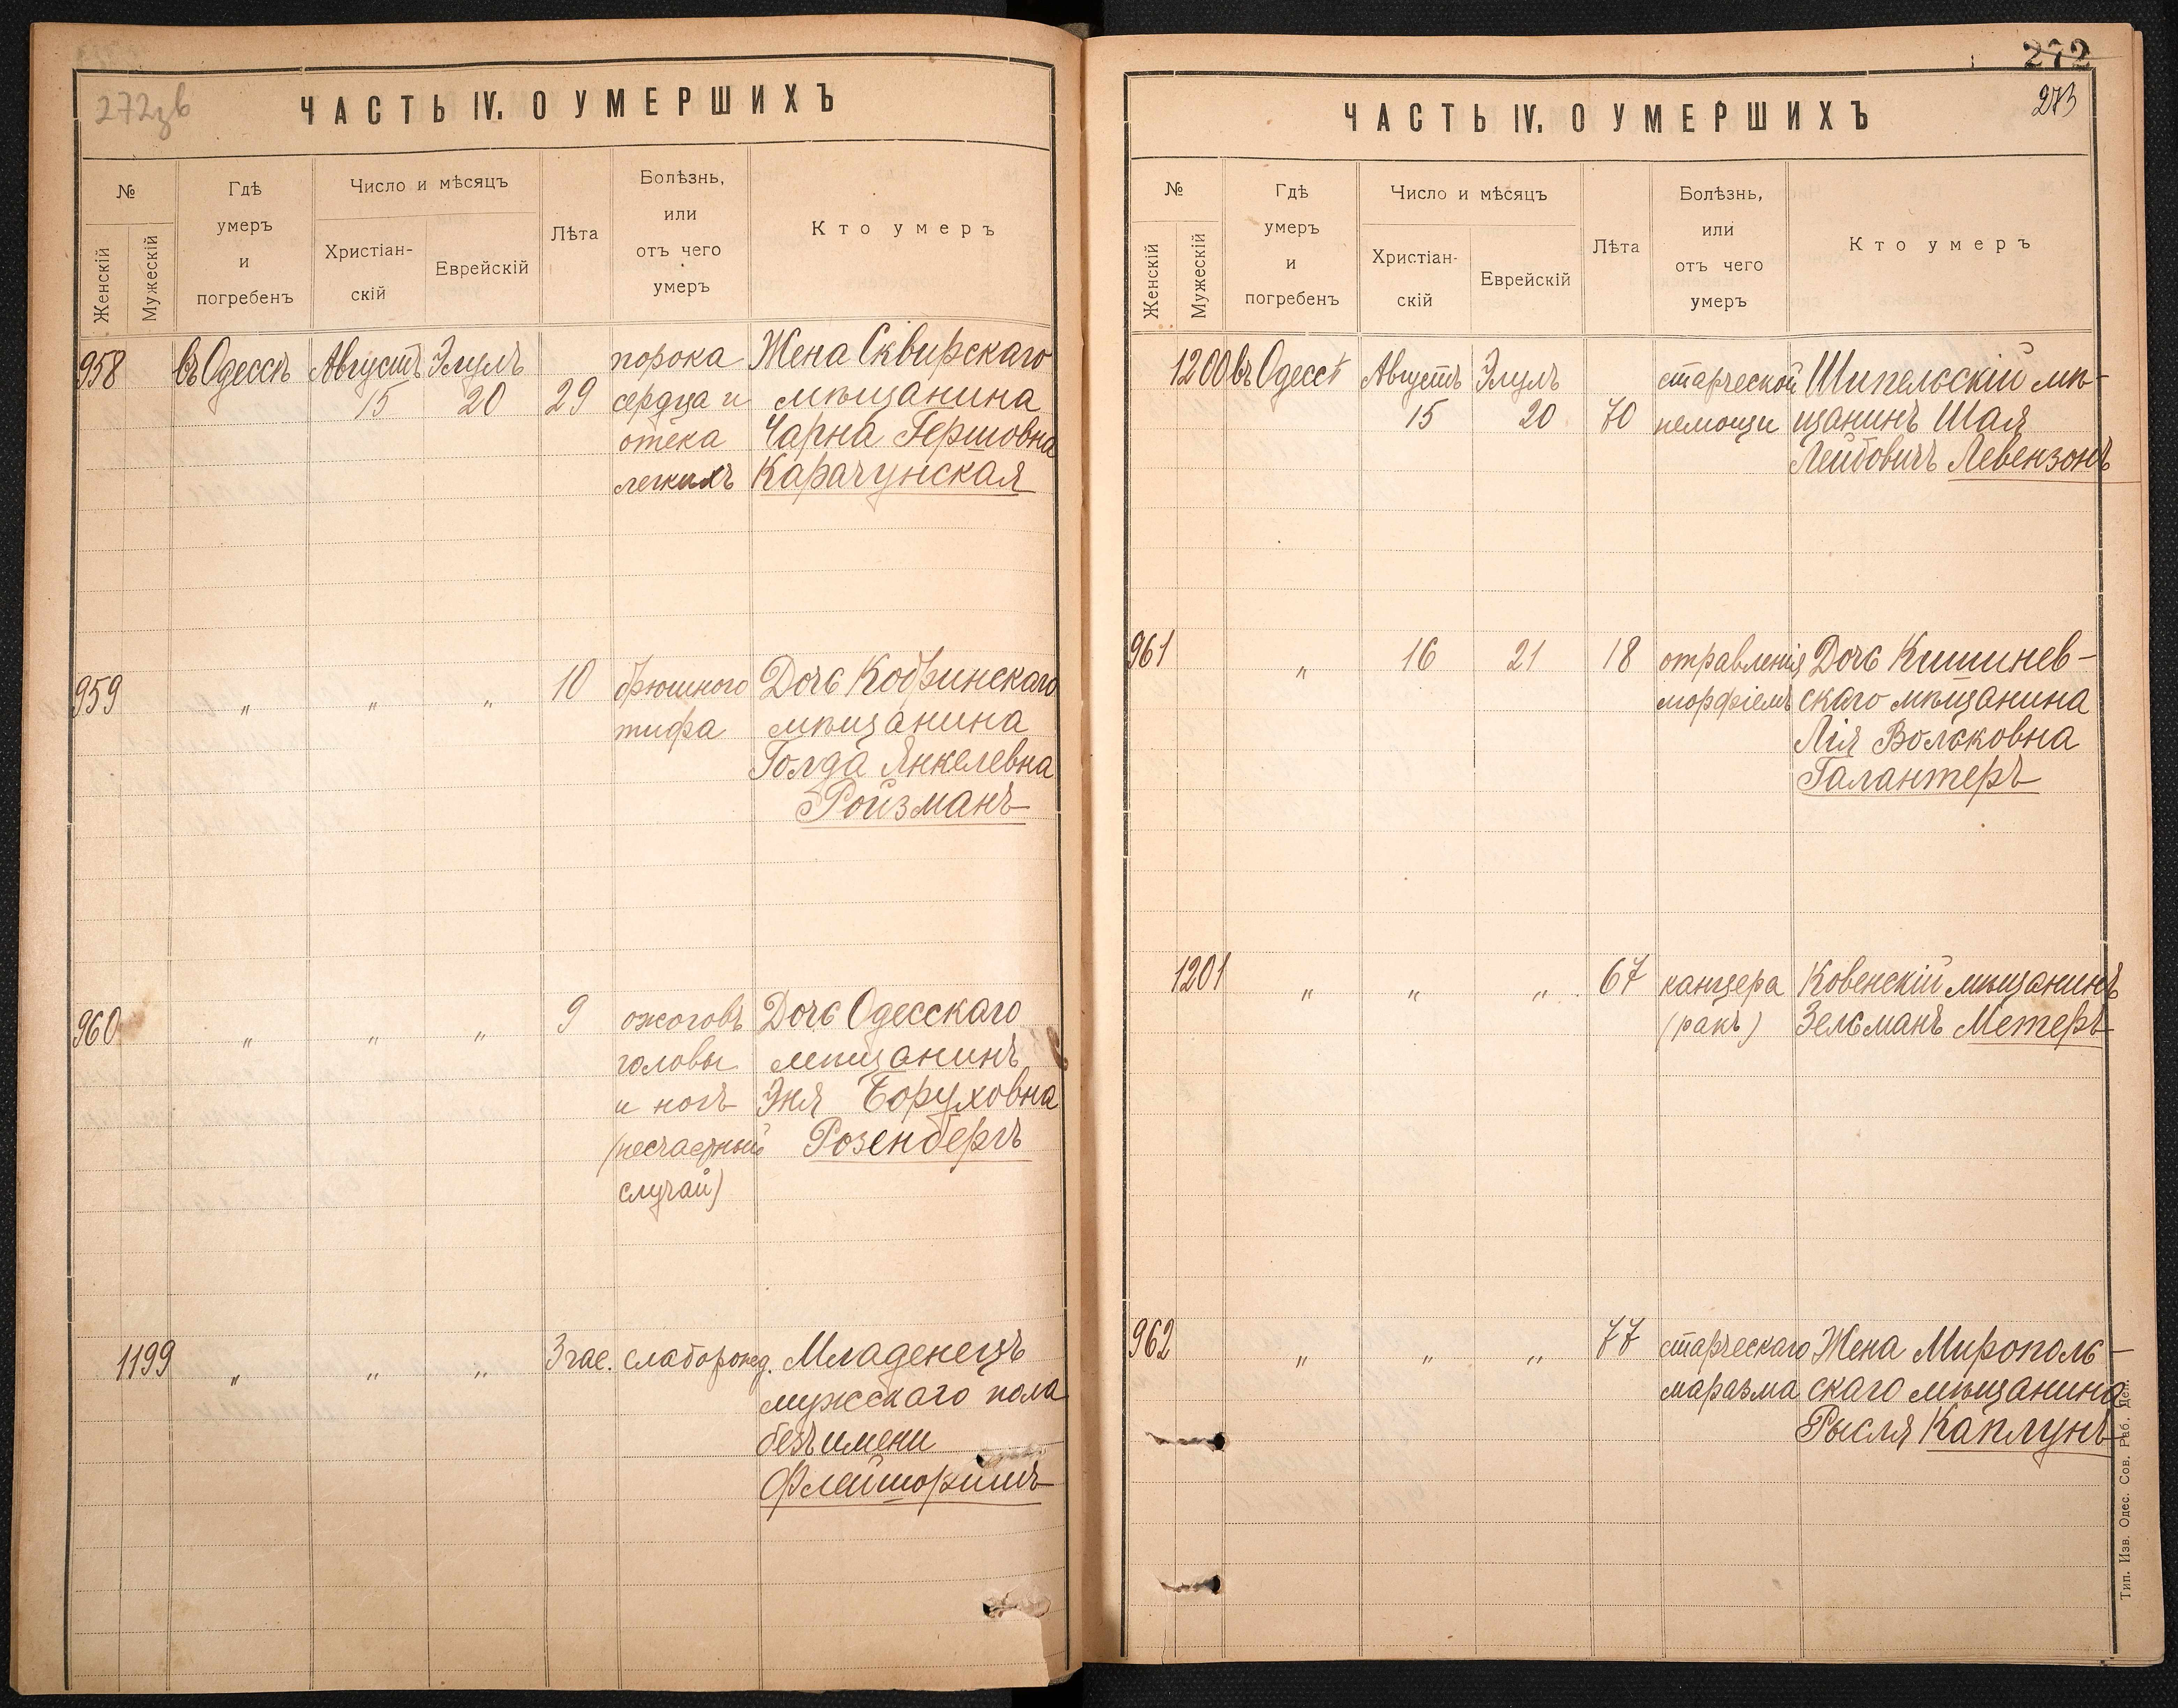 272зв
ЧАСТЬ IV. О УМЕРШИХЪ
№
Женскій
Мужескій
Гдѣ
умеръ
и
погребенъ
Число и мѣсяцъ
Христіан-
скій
Еврейскій
Лѣта
Болѣзнь,
или
отъ чего
умеръ
Кто умеръ
958 въ Одессѣ Августъ Элулъ порока Жена Сквирскаго
15 20 29 сердца и мѣщанина
отека Чарна Гершовна
легкихъ Карачунская
959 „ „ „ 10 брюшного Дочь Кобринскаго
тифа мѣщанина
Голда Янкелевна
Ройзманъ
960 „ „ „ 9 ожоговъ Дочь Одесскаго
головы мѣщанинъ
и ногъ Эня Боруховна
(несчастный Розенбергъ
случай)
1199 „ „ „ 3 час. слаборожд. Младенецъ
мужескаго пола
безъ имени
272
273
ЧАСТЬ IV. О УМЕРШИХЪ
№
Женскій
Мужескій
Гдѣ
умеръ
и
погребенъ
Число и мѣсяцъ
Христіан-
скій
Еврейскій
Лѣта
Болѣзнь,
или
отъ чего
умеръ
Кто умеръ
1200 въ Одессѣ Августъ Элулъ старческой Шипельскій мѣ-
15 20 70 немощи щанинъ Шая
Лейбовичъ Левензонъ
961 „ 16 21 18 отравленія Дочь Кишинев-
морфіемъ скаго мѣщанина
Лія Вольковна
Галантеръ
1201 „ „ „ 67 канцера Ковенскій мѣщанинъ
(ракъ) Зельманъ Метеръ
962 „ „ „ 77 старческаго Жена Мирополь-
маразма скаго мѣщанина
Рысля Каплунъ
Тип. Изв. Одес. Сов. Раб. Деп.